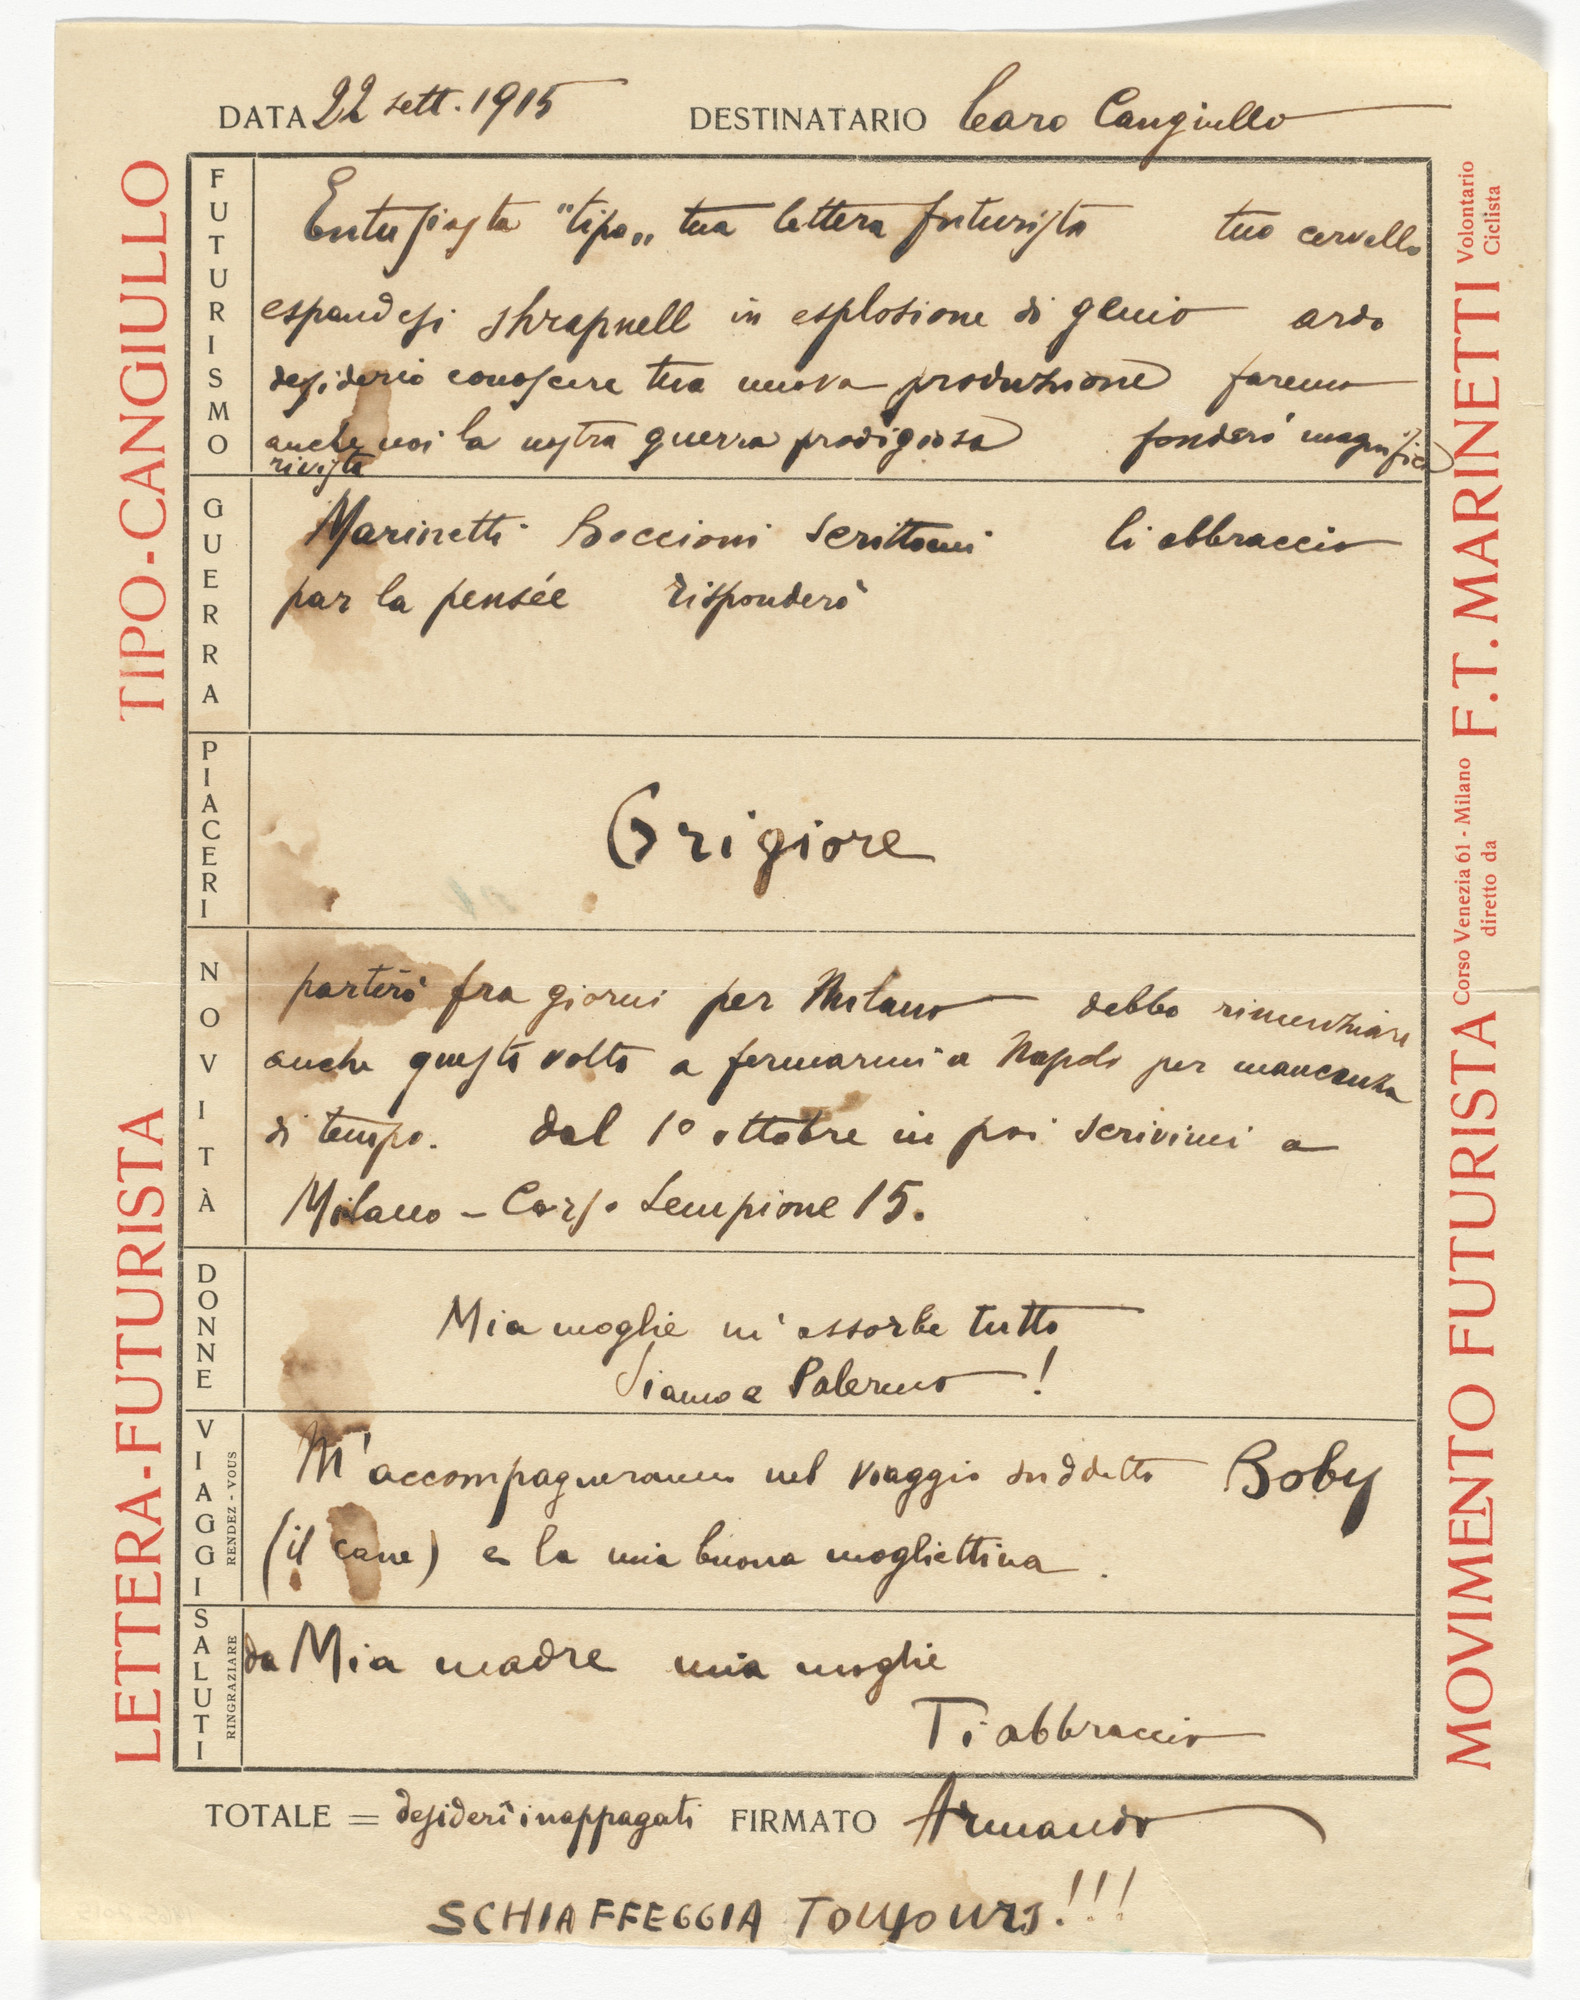 DATA 22 sett. 1915 DESTINATARIO Caro Cangiullo
FUTURISMO
Entusiasta "tipo„ tua lettera futurista tuo cervello
espandesi shrapnell in esplosione di genio ardo
desiderio conoscere tua nuova produzione faremo
anche noi la nostra guerra prodigiosa fonderò magnifica
rivista
GUERRA
Marinetti Boccioni scrittomi li abbraccio
par la pensée risponderò
PIACERI
Grigiore
NOVITÀ
partirò fra giorni per Milano debbo rinunziare
anche questa volta a fermarmi a Napoli per mancanza
di tempo. dal 1° ottobre in poi scrivimi a
Milano – Corso Sempione 15.
DONNE
Mia moglie m'assorbe tutto
Siamo a Palermo !
VIAGGI
RENDEZ-VOUS
M'accompagneranno nel viaggio suddetto Boby
(il cane) e la mia buona mogliettina.
SALUTI
RINGRAZIARE
da Mia madre mia moglie
Ti abbraccio
TOTALE = desideri inappagati FIRMATO Armando
SCHIAFFEGGIA TOUJOURS!!!
LETTERA-FUTURISTA TIPO-CANGIULLO
MOVIMENTO FUTURISTA
Corso Venezia 61 - Milano
diretto da
F. T. MARINETTI
Volontario
Ciclista